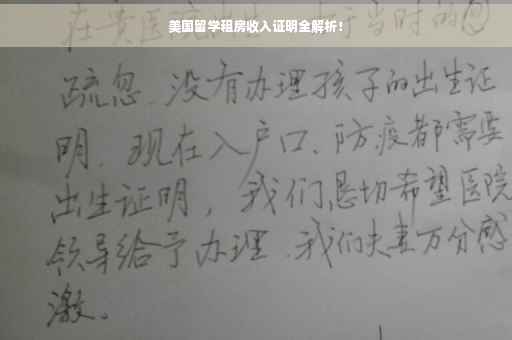 美国留学租房收入证明全解析！
在贵医院 于当时的
疏忽、没有办理孩子的出生证
明、现在入户口、防疫都需要
出生证明，我们恳切希望医院
领导给予办理、我们夫妻万分感
激。